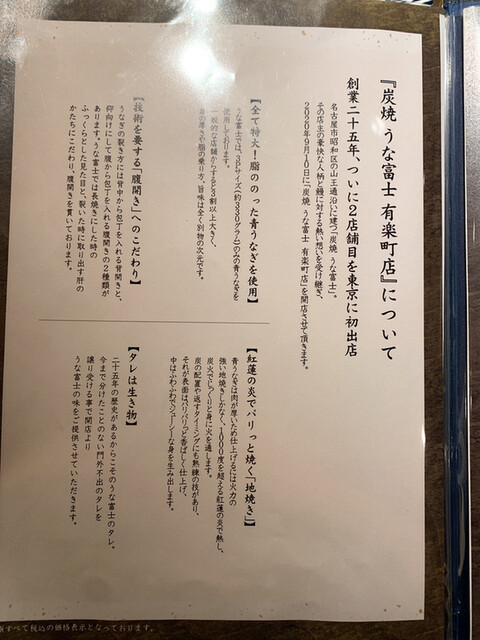 『炭焼 うな富士 有楽町店』について
創業二十五年、ついに2店舗目を東京に初出店
名古屋市昭和区の山王通沿いに建つ「炭焼 うな富士」。
その店主の豪快な人柄と鰻に対する熱い想いを受け継ぎ、
2020年9月10日に「炭焼 うな富士 有楽町店」を開店させて頂きます。
【全て特大！脂ののった青うなぎを使用】
うな富士では、3Pサイズ（約330グラム）のみの青うなぎを
使用しております。
一般的な店舗からすると3割以上大きく、
身の厚さや脂の乗り方、旨味は全く別物の次元です。
【技術を要する「腹開き」へのこだわり】
うなぎの裂き方には背中から包丁を入れる背開きと、
仰向けにして腹から包丁を入れる腹開きの2種類が
あります。うな富士では長焼きにした時の
ふっくらとした見た目と裂いた時に取り出す肝の
かたちにこだわり、腹開きを貫いております。
【紅蓮の炎でパリっと焼く「地焼き」】
青うなぎは肉が厚いため仕上げるには火力の
強い地焼きしかなく、1000度を超える紅蓮の炎で熱し、
炭火でじっくりと身に火を通します。
炭の配置や返すタイミングにも熟練の技があり、
それが表面はパリパリっと香ばしく仕上げ、
中はふわふわでジューシーな身を生み出します。
【タレは生き物】
二十五年の歴史があるからこそのうな富士のタレ。
今まで分けたことのない門外不出のタレを
譲り受ける事で開店より
うな富士の味をご提供させていただきます。
すべて税込の価格表示となっております。